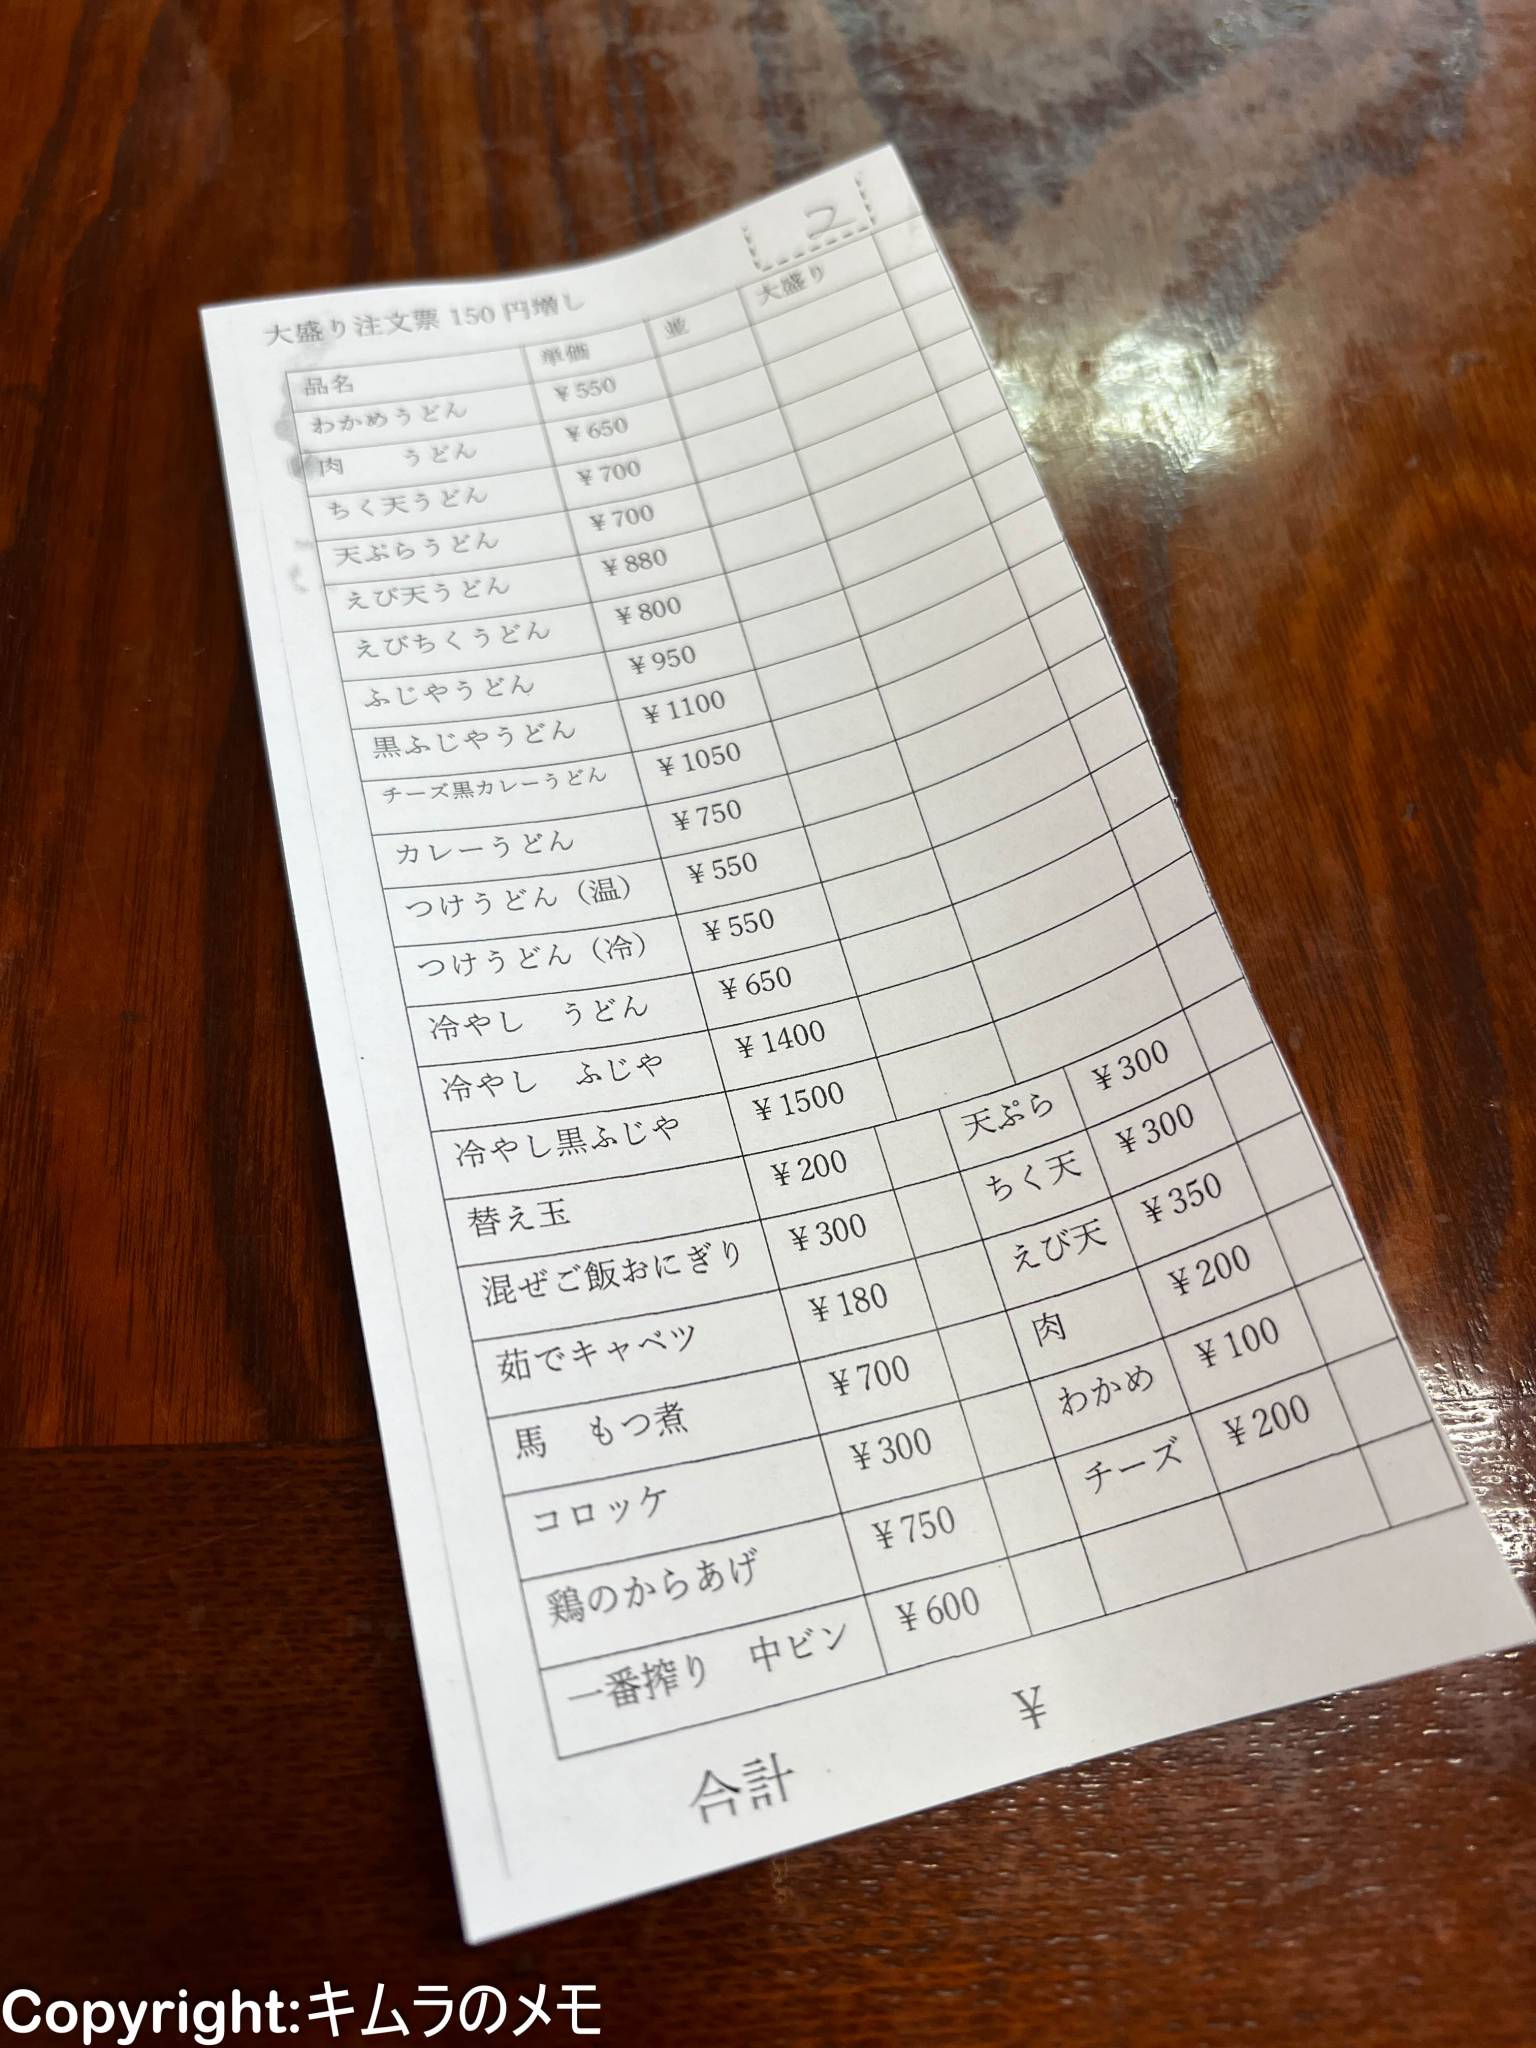 2
大盛り注文票 150 円増し
品名 単価 並 大盛り
わかめうどん ¥550
肉 うどん ¥650
ちく天うどん ¥700
天ぷらうどん ¥700
えび天うどん ¥880
えびちくうどん ¥800
ふじやうどん ¥950
黒ふじやうどん ¥1100
チーズ黒カレーうどん ¥1050
カレーうどん ¥750
つけうどん（温） ¥550
つけうどん（冷） ¥550
冷やし うどん ¥650
冷やし ふじや ¥1400
冷やし黒ふじや ¥1500
替え玉 ¥200 天ぷら ¥300
混ぜご飯おにぎり ¥300 ちく天 ¥300
茹でキャベツ ¥180 えび天 ¥350
馬 もつ煮 ¥700 肉 ¥200
コロッケ ¥300 わかめ ¥100
鶏のからあげ ¥750 チーズ ¥200
一番搾り 中ビン ¥600
合計 ¥
Copyright:キムラのメモ